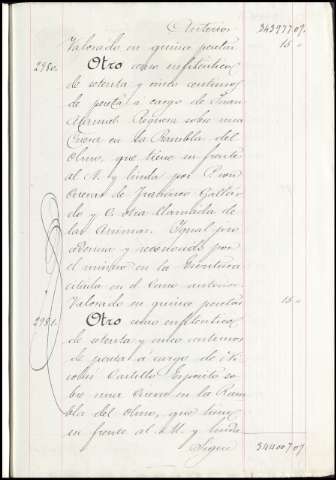 Anterior 3439770 7.
Valorado en quince pesetas 15 "
2980. Otro censo enfiteutico
de setenta y cinco centimos
de peseta á cargo de Juan
Requena sobre una
Cueva en la Rambla del
Olmo, que tiene su frente
al N. y linda por P. con
Cuevas de Francisco Gallar
do y C. otra llamada de
las Animas. Igual pro
cedencia y reconocido por
el mismo en la Escritura
citada en el Censo anterior.
Valorado en quince pesetas 15 "
2981. Otro censo enfiteutico
de setenta y cinco centimos
de peseta á cargo de
Castillo Esposito so
bre una Cueva en la Ram
bla del Olmo, que tiene
su frente al M. y linda
Sigue 3440070 7